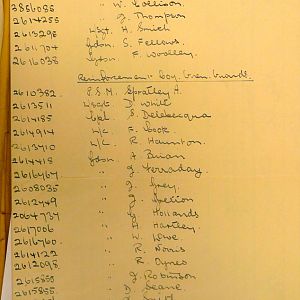 3856085 " W. Collison.
2614255 " J. Thompson
2613298 L/Sgt. H. Smith
2611704 Gdsn. S. Fellows.
2616038 Gdsn. F. Woolley.
Reinforcement Coy. Gren. Guards.
2610382 P.S.M. Spratley A.
2613511 L/Sgt. D. White
2614185 Cpl. S. Delebecque
2614914 L/C. F. Cook.
2613710 L/C. R. Haunton.
2614418 Gdsn. A. Brian
2616467 " J. Ferraday.
2608035 " J. Grey.
2612449 " J.
" Hollands
2617006 " A. Hartley
2616760 " W. Lowe.
2614122 " R. Norris
2612098 " R. Oyres
2615858 " J. Robinson
2615855 " D. Deane.